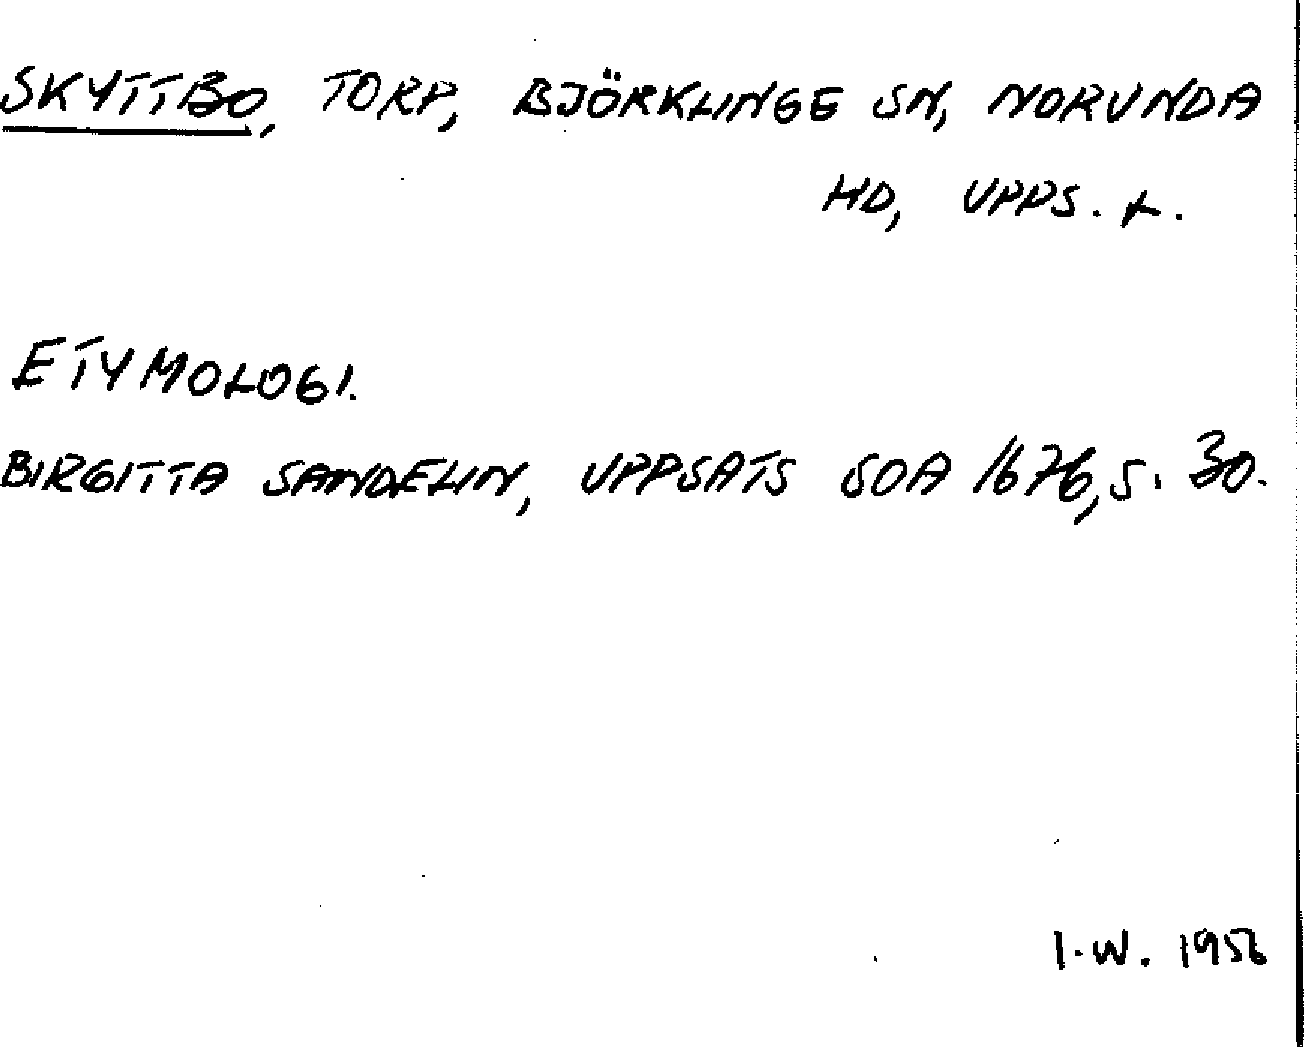 SKYTTBO, TORP, BJÖRKLINGE SN, NORUNDA
HD, UPPS. L.
ETYMOLOGI.
BIRGITTA SANDELIN, UPPSATS SOA 1676, S. 30.
I.W. 1956